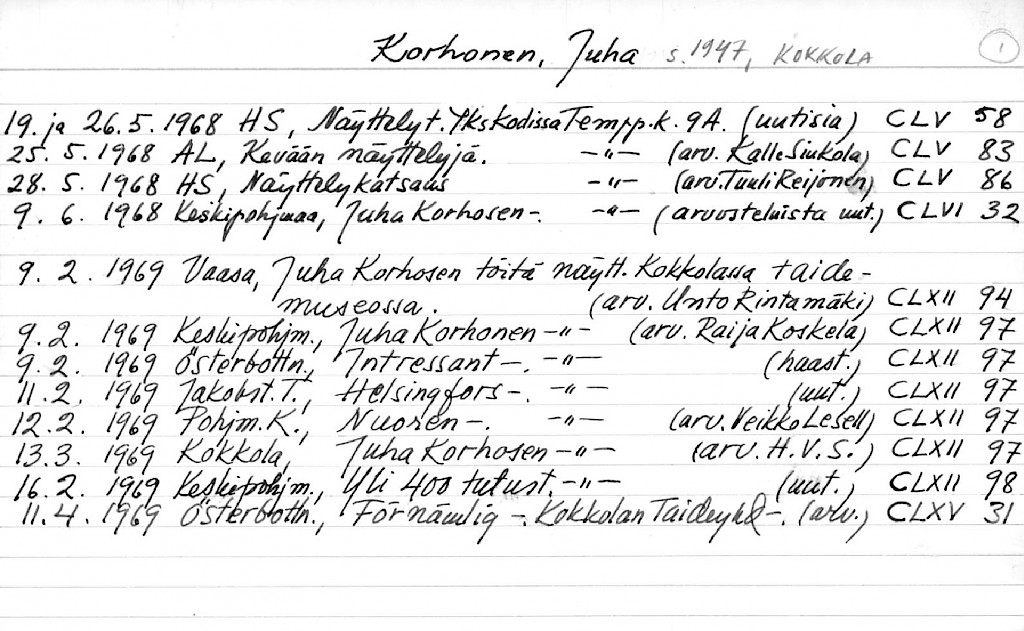 Korhonen, Juha s. 1947, KOKKOLA 1
19. ja 26.5.1968 HS, Näyttelyt. Ykskodissa Tempp.k. 9A. (uutisia) CLV 58
25. 5. 1968 AL, Kevään näyttelyjä. -"- (arv. Kalle Siukola) CLV 83
28. 5. 1968 HS, Näyttelykatsaus -"- (arv. Tuuli Reijonen) CLV 86
9. 6. 1968 Keskipohjmaa, Juha Korhosen -. -"- (arvosteluista uut.) CLVI 32
9. 2. 1969 Vaasa, Juha Korhosen töitä näytt. Kokkolassa taide-
museossa. (arv. Unto Rintamäki) CLXII 94
9.2. 1969 Keskipohjm., Juha Korhonen -"- (arv. Raija Koskela) CLXII 97
9.2. 1969 Österbottn., Intressant -. -"- (haast.) CLXII 97
11.2. 1969 Jakobst. T., Helsingfors -. -"- (uut.) CLXII 97
12.2. 1969 Pohjm. K., Nuoren -. -"- (arv. Veikko Lesell) CLXII 97
13.3. 1969 Kokkola, Juha Korhosen -"- (arv. H.V.S.) CLXII 97
16.2. 1969 Keskipohjm., Yli 400 tutust. -"- (uut.) CLXII 98
11.4. 1969 Österbottn., Förnämlig -. Kokkolan Taideyhd -. (arv.) CLXV 31